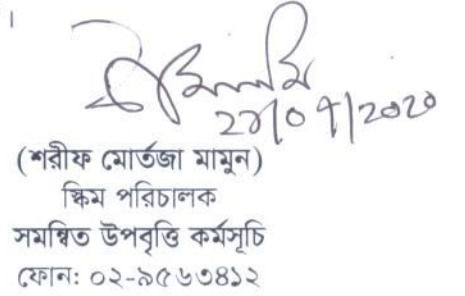 ।
(শরীফ মোর্তজা মামুন)
স্কিম পরিচালক
সমন্বিত উপবৃত্তি কর্মসূচি
ফোন: ০২-৯৫৬৩৪১২